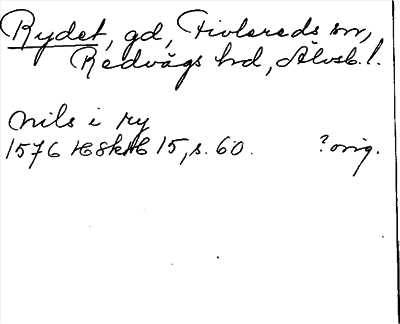 Rydet, gd, Tivlereds sn,
Redvägs hd, Älvsb. l.
Nils i ry
1576 15, s. 60. ? orig.